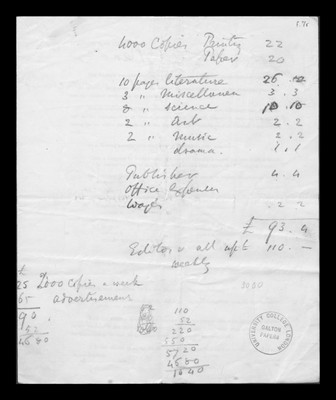 4000 Copies Printing 22
Paper 20
10 pages literature 26
3 " Miscellanea 3 . 3
8 " science 10 . 10
2 " Art 2 . 2
2 " Music 2 . 2
drama. 1 . 1
Publisher 4 . 4
Office Expences
Wages 2 2
£ 93 . 4
Editor & all 110 . —
weekly
£
25 2000 Copies a week
65 advertisement
90 .
52
4680
110
52
220
550
5720
4680
1040
UNIVERSITY COLLEGE LONDON
GALTON
PAPERS